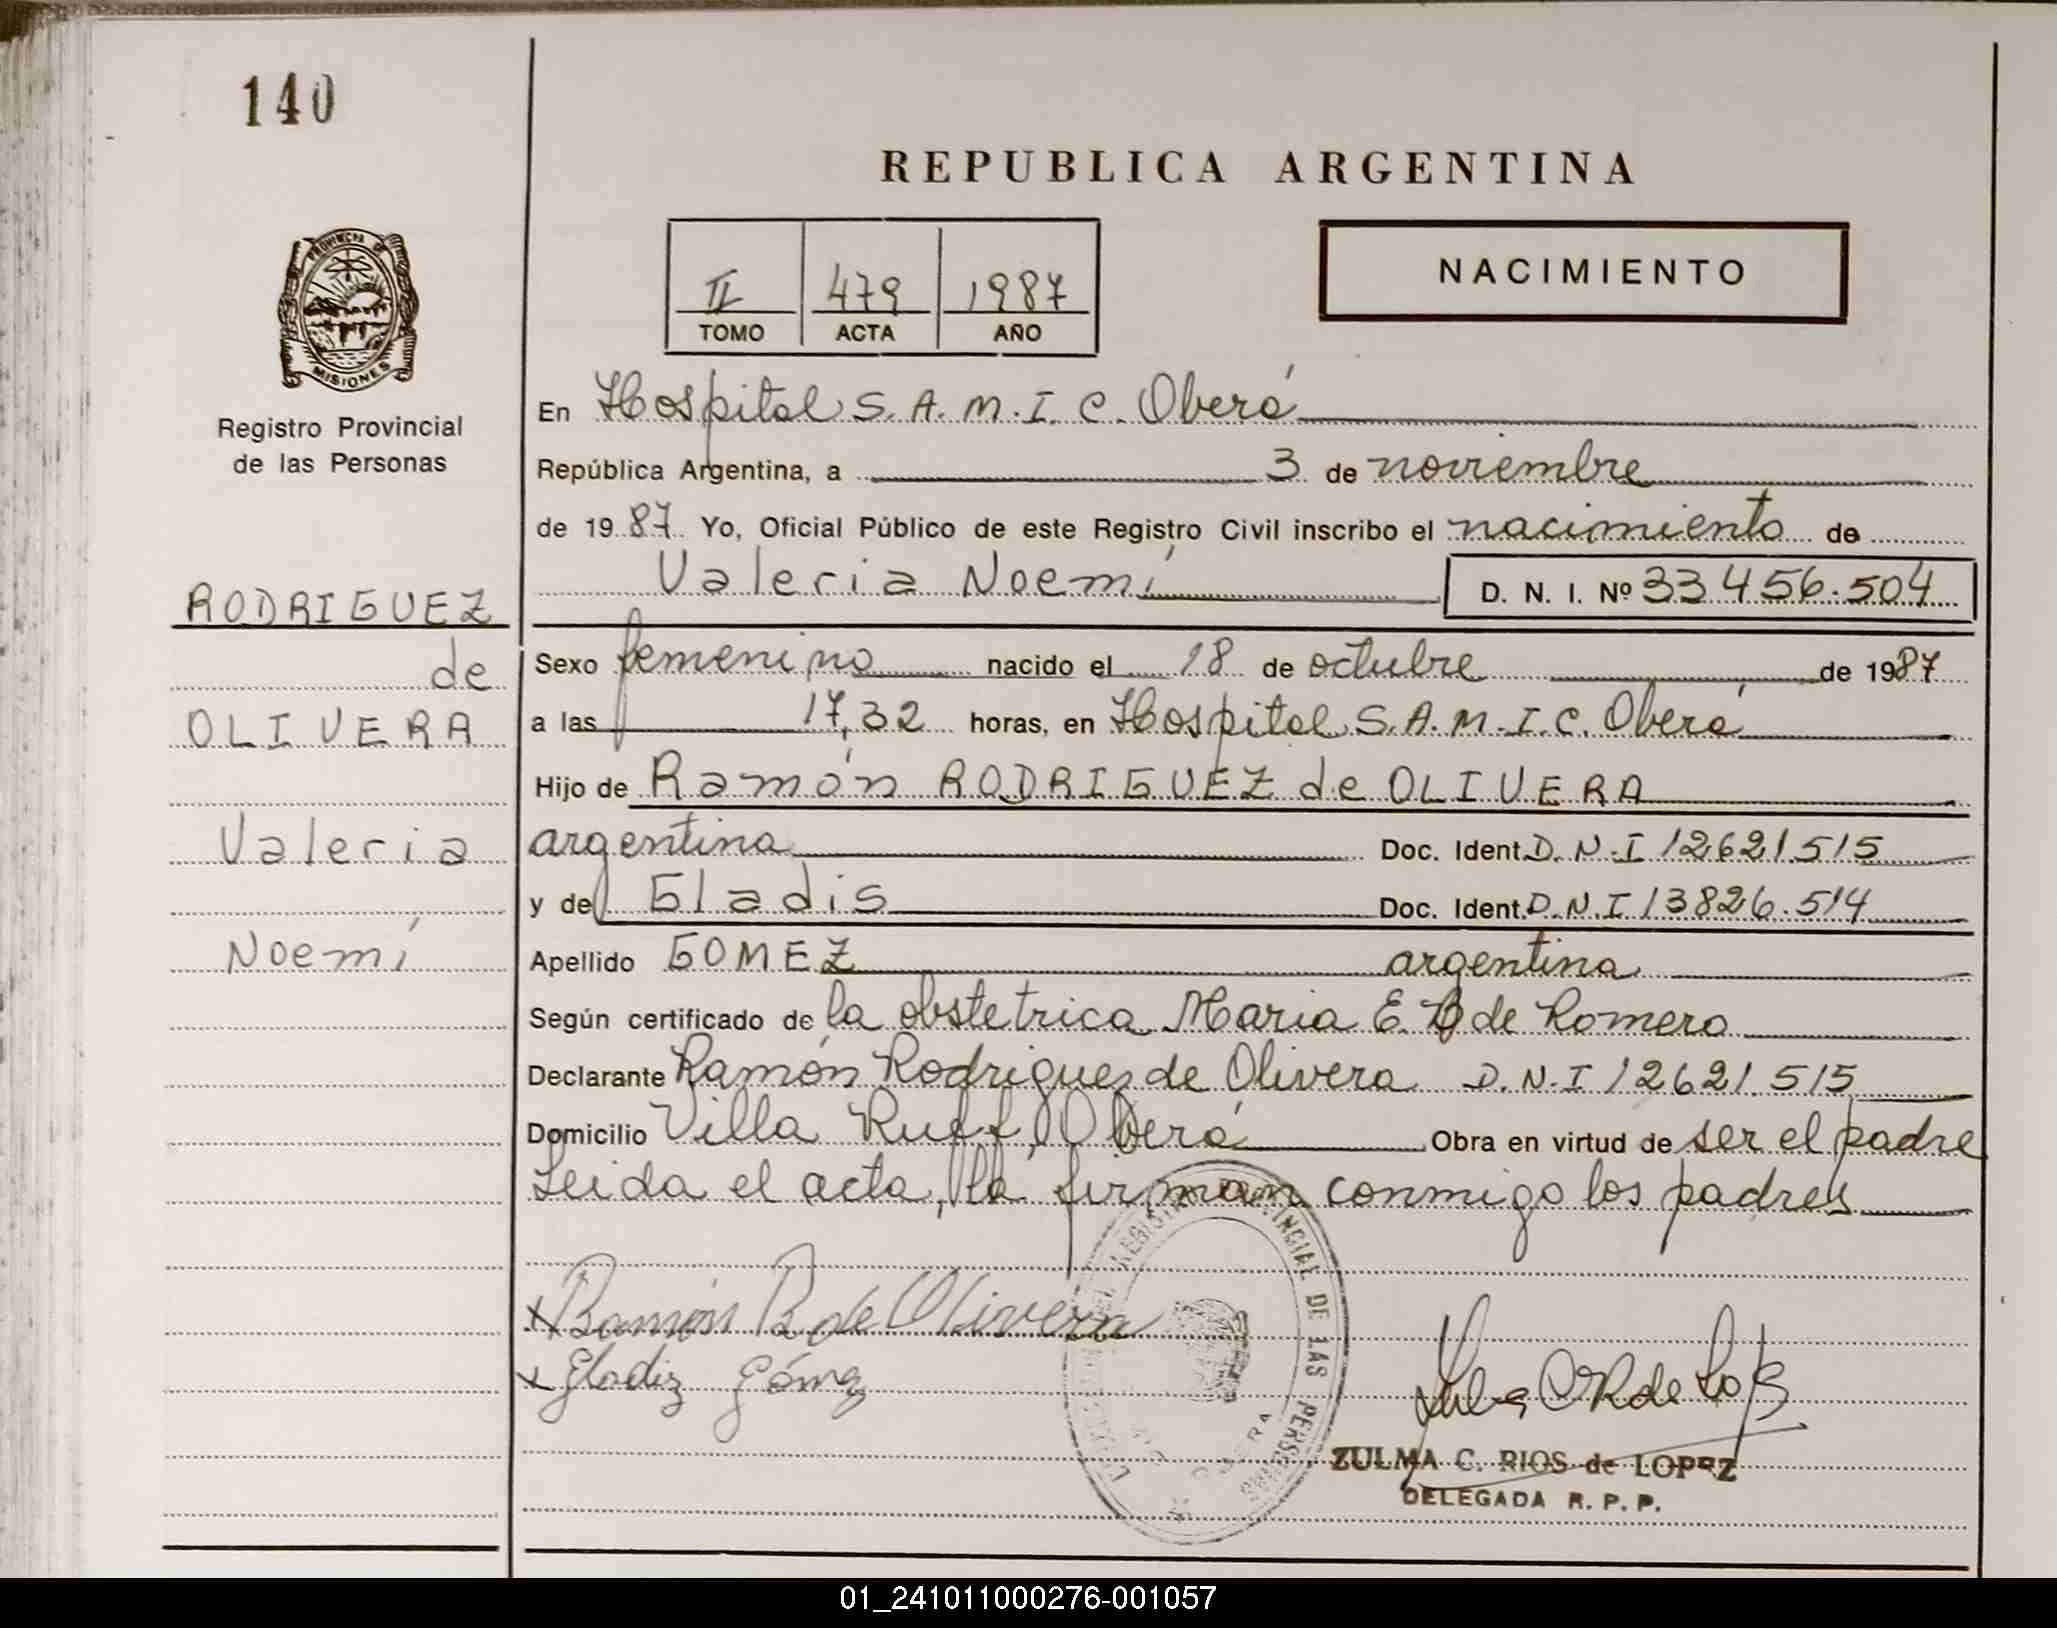 140
REPUBLICA ARGENTINA
II 479 1987
TOMO ACTA AÑO
NACIMIENTO
PROVINCIA DE
MISIONES
Registro Provincial
de las Personas
RODRIGUEZ
de
OLIVERA
Valeria
Noemí
En Hospital S.A.M.I.C. Oberá
República Argentina, a 3 de noviembre
de 1987 Yo, Oficial Público de este Registro Civil inscribo el nacimiento de
Valeria Noemí D. N. I. Nº 33456.504
Sexo femenino nacido el 18 de octubre de 1987
a las 17,32 horas, en Hospital S.A.M.I.C. Oberá
Hijo de Ramón RODRIGUEZ de OLIVERA
argentina Doc. Ident. D.N.I 12621515
y de Gladis Doc. Ident. D.N.I 13826.514
Apellido GOMEZ argentina
Según certificado de la obstetrica Maria E. B de Romero
Declarante Ramón Rodriguez de Olivera D.N.I 12621.515
Domicilio Villa Ruff, Oberá Obra en virtud de ser el padre
Leida el acta, la firman conmigo los padres
x Ramón R de Olivera
x Gladiz Gómez
REGISTRO PROVINCIAL DE LAS PERSONAS
ZULMA C. RIOS de LOPEZ
DELEGADA R. P. P.
01_241011000276-001057